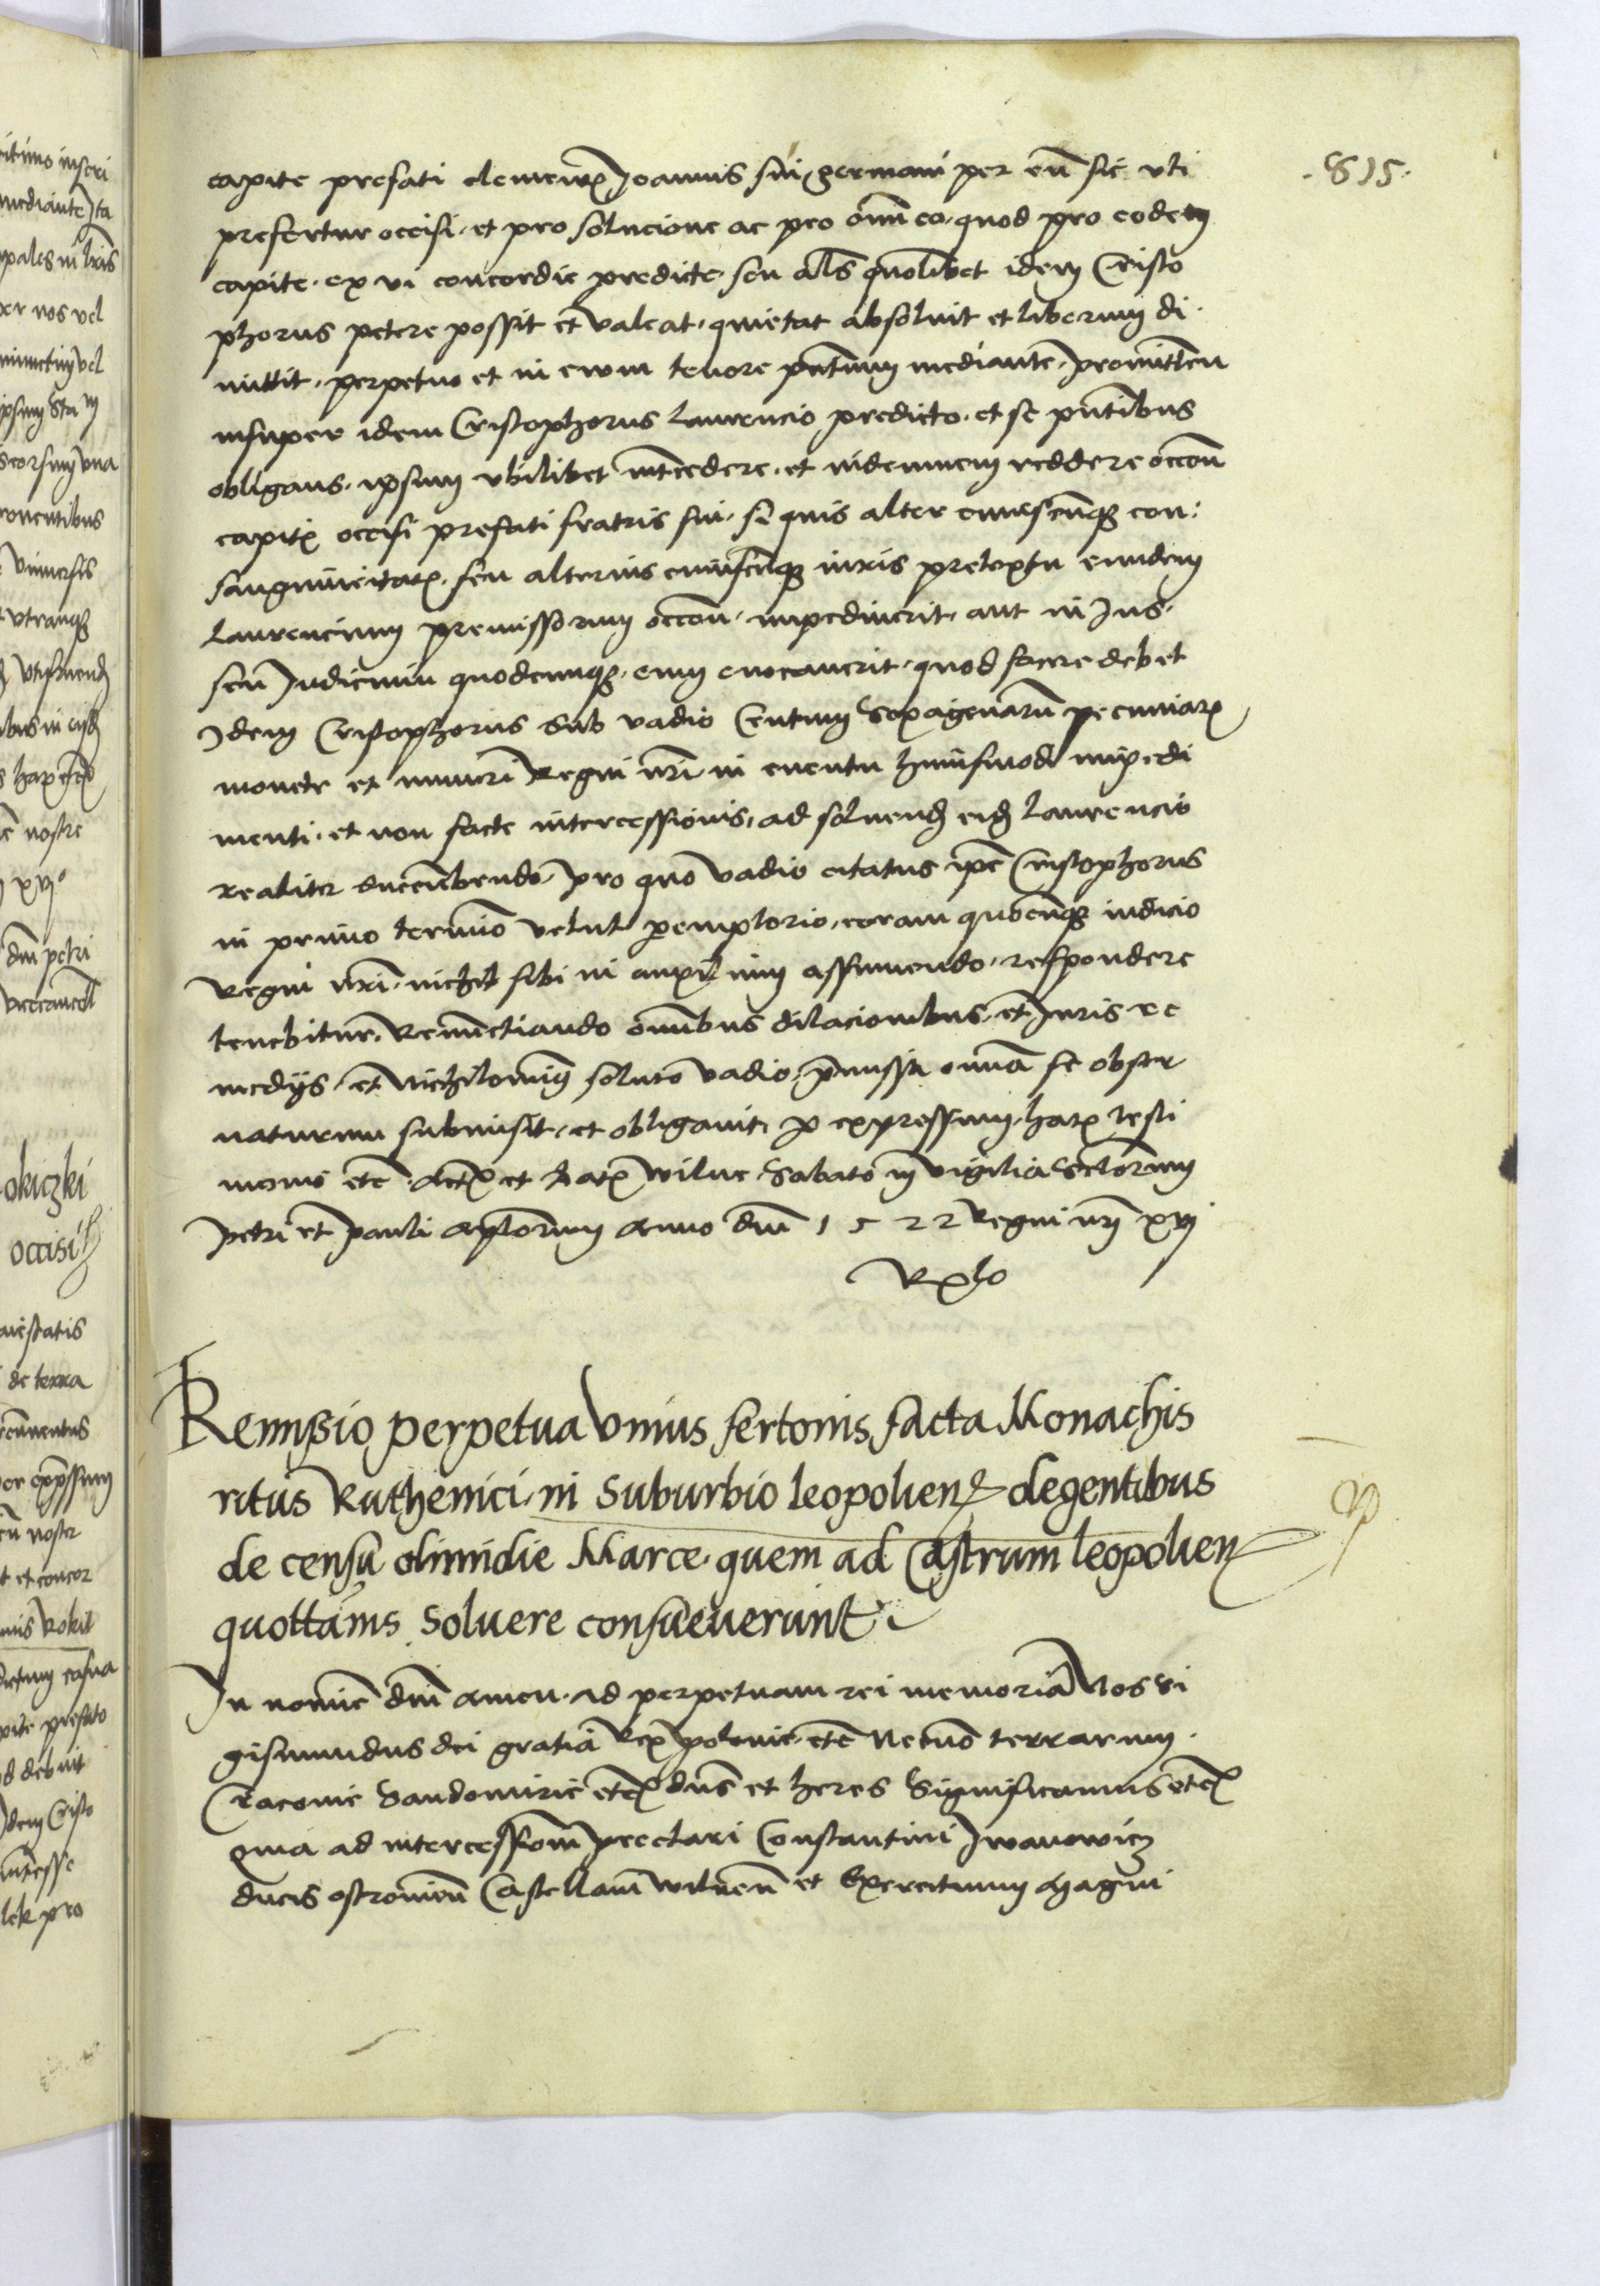 .815.
capite prefati clementis Joannis sui germani per eū sic vti
prefertur occisi. et pro solucione ac pro om̄i eo. quod pro eodem
capite. ex vi concordie predicte. seu al̄s quōlibet idem Cristo
phorus petere possit et valeat. quietat absoluit et liberum di
mittit. perpetuo et in ewm tenore pn̄tium mediante. promitten̄
insuper idem Cristophorus Laurencio predicto. et se pn̄tibus
obligans. ipsum vbilibet int̄cedere. et indemnem reddere occōn̄
capitis occisi prefati fratris sui. si quis alter cuiuscūq; con:
sanguineitatis. seu alterius cuiuscūq; iuris pretextu eundem
Laurencium premissorum occōn̄. impediuerit. aut in Jus.
seu Judicium quodcunq;. eum euocauerit. quod facere debet
Idem Cristophorus sub vadio Centum Sexagenarū pecuniar
monete et numeri Regni nr̄i in euentu huiusmodi impedi
menti. et non facte intercessionis. ad soluend eid Laurencio
realiter succūbendo. pro quo vadio citatus ip̄e Cristophorus
in primo termīo velut peremptorio. coram quocūq; iudicio
Regni nr̄i. nichil sibi in auxilium assumendo. respondere
tenebitur. Renunctiando om̄ibus dilacionibus. et Juris re
medijs. et Nichilominus soluto vadio. p̄missa om̄ia se obser
uaturum submisit. et obligauit. per expressum. har testi
monio etc. Act et Dat Wilne Sabato in vigilia Sctōrum
petri et pauli Apl̄orum Anno dn̄i 1522 Regni nr̄i xvj
Remissio perpetua vnius fertonis facta Monachis
ritus Ruthenici. in Suburbio leopolien degentibus
de censu dimidie Marce. quem ad Castrum leopolien
quottānis Soluere consueuerunt
In nomīe dn̄i amen. ad perpetuam rei memoriā Nos Si
gismundus dei gratia Rex polonie. etc Necnō terrarum.
Cracouie Sandomirie etc dn̄s et heres Significamus etc
quia ad intercessiōem preclari Constantini Jwanowicz
ducis ostrouien̄ Castellani Wilnen̄ et Exercituum Magni